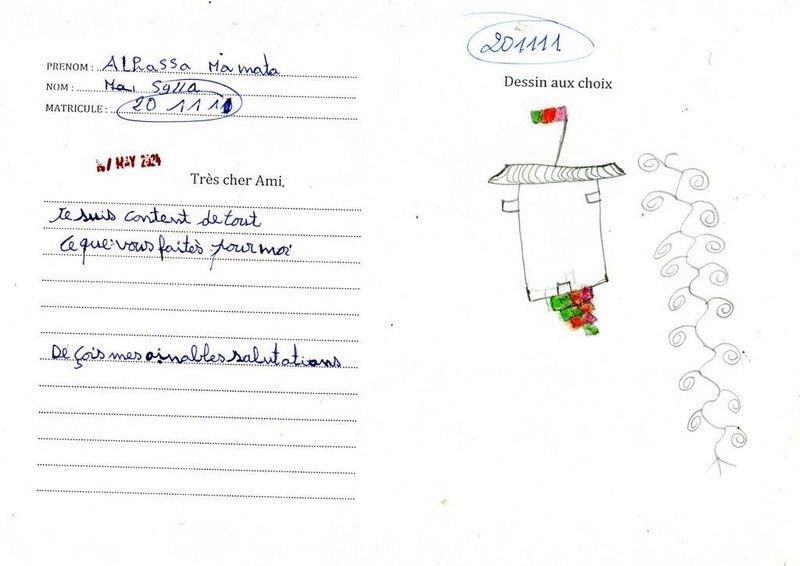 PRENOM : Alhassa Mamata
NOM : Mai Sylla
MATRICULE : 20 1111
MAY 2024
Très cher Ami,
Je suis content de tout
ce que vous faites pour moi
De çois mes aimables salutations
201111
Dessin aux choix